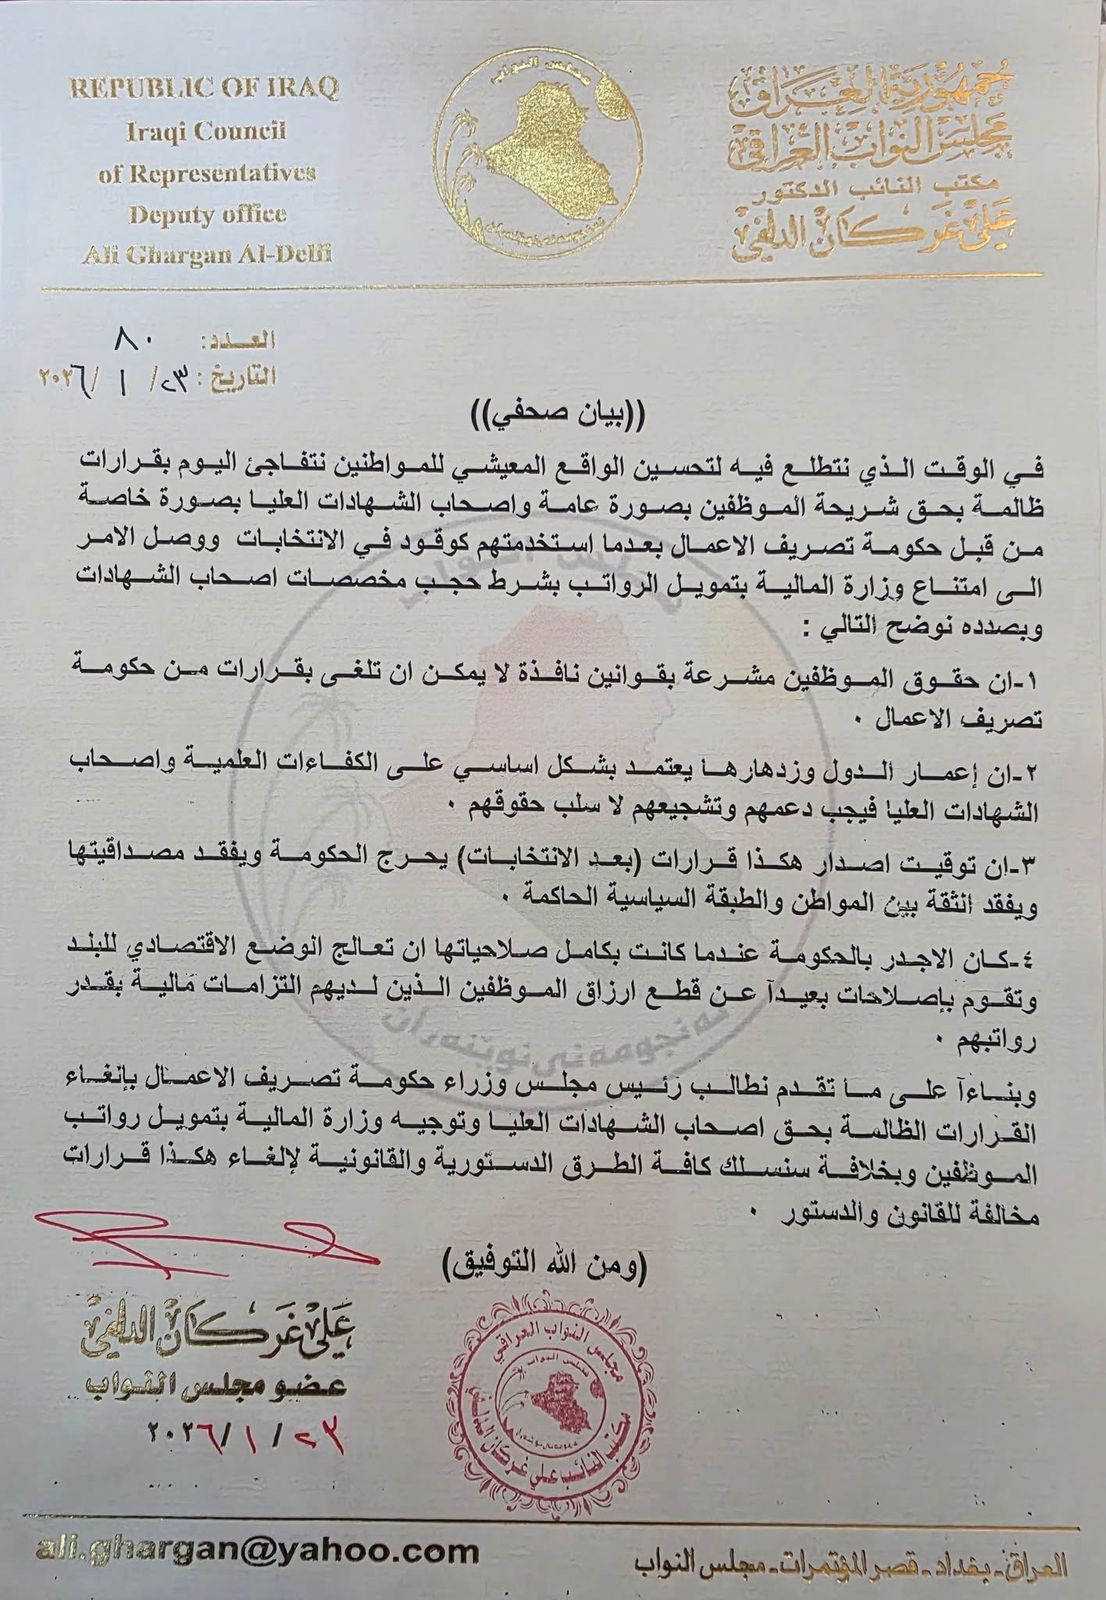 REPUBLIC OF IRAQ
Iraqi Council
of Representatives
Deputy office
Ali Ghargan Al-Delfi
مجلس النواب
جمهورية العراق
مجلس النواب العراقي
مكتب النائب الدكتور
علي غركان الدلفي
العدد: ٨٠
التاريخ: ٢٣/ ١ /٢٠٢٦
((بيان صحفي))
في الوقت الذي نتطلع فيه لتحسين الواقع المعيشي للمواطنين نتفاجئ اليوم بقرارات
ظالمة بحق شريحة الموظفين بصورة عامة واصحاب الشهادات العليا بصورة خاصة
من قبل حكومة تصريف الاعمال بعدما استخدمتهم كوقود في الانتخابات ووصل الامر
الى امتناع وزارة المالية بتمويل الرواتب بشرط حجب مخصصات اصحاب الشهادات
وبصدده نوضح التالي :
١-ان حقوق الموظفين مشرعة بقوانين نافذة لا يمكن ان تلغى بقرارات من حكومة
تصريف الاعمال ٠
٢-ان إعمار الدول وزدهارها يعتمد بشكل اساسي على الكفاءات العلمية واصحاب
الشهادات العليا فيجب دعمهم وتشجيعهم لا سلب حقوقهم ٠
٣-ان توقيت اصدار هكذا قرارات (بعد الانتخابات) يحرج الحكومة ويفقد مصداقيتها
ويفقد الثقة بين المواطن والطبقة السياسية الحاكمة ٠
٤-كان الاجدر بالحكومة عندما كانت بكامل صلاحياتها ان تعالج الوضع الاقتصادي للبلد
وتقوم بإصلاحات بعيدآ عن قطع ارزاق الموظفين الذين لديهم التزامات مالية بقدر
رواتبهم ٠
وبناءآ على ما تقدم نطالب رئيس مجلس وزراء حكومة تصريف الاعمال بإلغاء
القرارات الظالمة بحق اصحاب الشهادات العليا وتوجيه وزارة المالية بتمويل رواتب
الموظفين وبخلافة سنسلك كافة الطرق الدستورية والقانونية لإلغاء هكذا قرارات
مخالفة للقانون والدستور ٠
(ومن الله التوفيق)
علي غركان الدلفي
عضو مجلس النواب
٢٣ / ١ /٢٠٢٦
مجلس النواب العراقي
مجلس النواب
مكتب النائب علي غركان الدلفي
ali.ghargan@yahoo.com
العراق - بغداد - قصر المؤتمرات - مجلس النواب